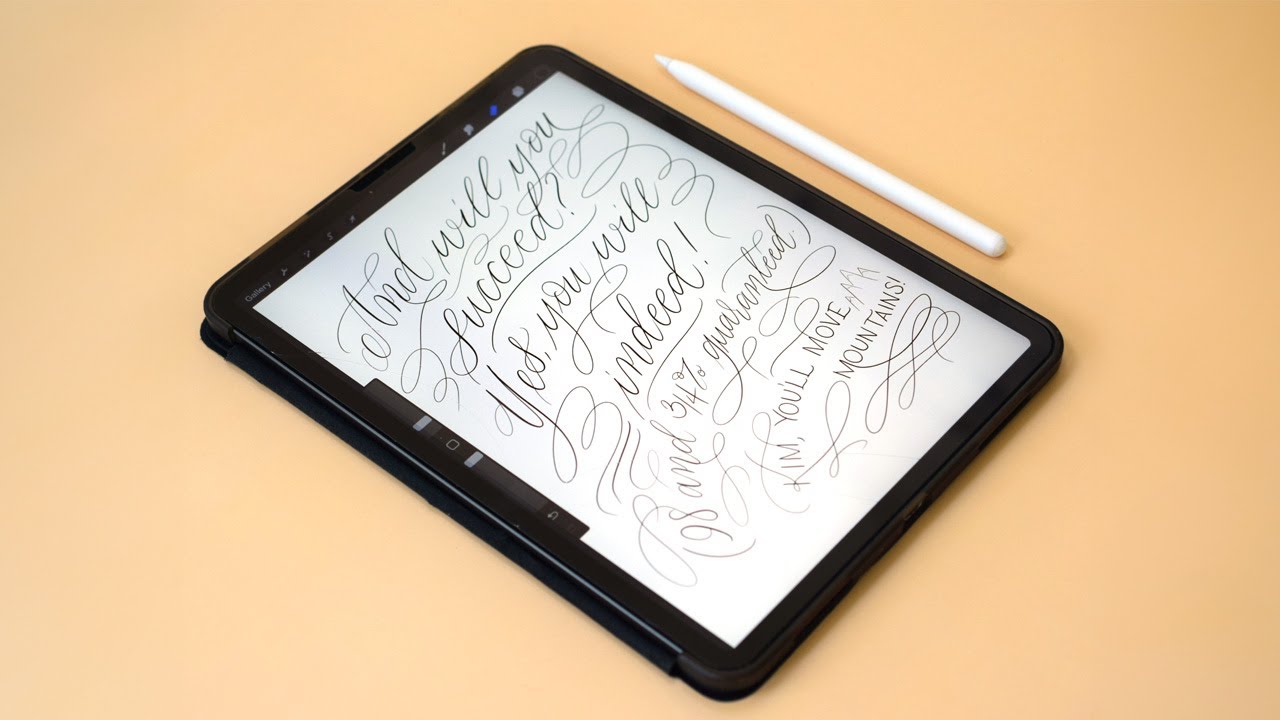 Gallery
And will you
succeed?
Yes, you will
indeed!
(98 and 3/4% guaranteed.)
(KIM, YOU'LL MOVE
MOUNTAINS!